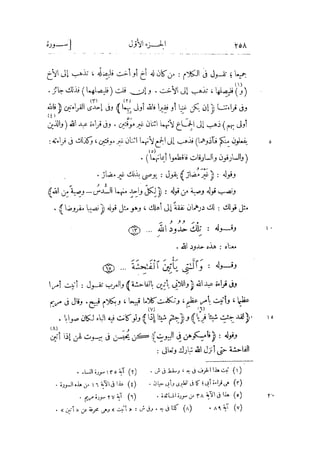 ٢٥٨ الجزء الأول [ســورة
جميعا ؛ تقول فى الكلام : من كان له أخ أو أخت فليصله ، تذهب إلى الأخ
(و) فليصلها ، تذهب إلى الأخت . وإن قلت (فليصلهما) فذلك جائز .
وفى قراءتنا ﴿إن يكن غنيا أو فقيرا فالله أولى بهما﴾ وفى إحدى القراءتين ﴿فالله
أولى بهم﴾ ذهب إلى الجماع لأنهما اثنان غير موقتين . وفى قراءة عبد الله ﴿والذين
يفعلون منكم فآذوهما﴾ فذهب إلى الجمع لأنهما اثنان غير موقتين ، وكذلك فى قراءته :
﴿والسارقون والسارقات فاقطعوا أيمانهما﴾ .
وقوله : ﴿غير مضار﴾ يقول : يوصى بذلك غير مضار .
ونصب قوله وصية من قوله : ﴿فلكل واحد منهما السدس — وصية من الله﴾
مثل قولك : لك درهمان نفقة إلى أهلك ، وهو مثل قوله ﴿نصيبا مفروضا﴾ .
وقــوله : تِلْكَ حُدُودُ اللهِ ... ١٣
معناه : هذه حدود الله .
وقــوله : وَٱلَّٰتِى يَأْتِينَ ٱلْفَٰحِشَةَ ... ١٥
وفى قراءة عبد الله ﴿واللاتى يأتين بالفاحشة﴾ والعرب تقول : أتيت أمرا
عظيما ، وأتيت بأمر عظيم ، وتكلمت كلاما قبيحا ، وبكلام قبيح . وقال فى مريم
﴿لقد جئت شيئا فريا﴾ و﴿جئتم شيئا إدا﴾ ولو كانت فيه الباء لكان صوابا .
وقوله : ﴿فأمسكوهن فى البيوت﴾ كن يحبسن فى بيوت لهن إذا أتين
الفاحشة حتى أنزل الله تبارك وتعالى :
(١) ثبت هذا الحرف فى ج ، وسقط فى ش . (٢) آية ١٣٥ سورة النساء .
(٣) هى قراءة أبىّ ؛ كما فى الطبرى وأبى حيان . (٤) هذا فى الآية ١٦ من هذه السورة .
(٥) هذا فى الآية ٣٨ من سورة المائدة . (٦) آية ٢٧ سورة مريم .
(٧) آية ٨٩ . (٨) كذا فى ج . وفى ش : « أتيت » وهى محرفة عن « أتين » .
٥
١٠
١٥
٢٠